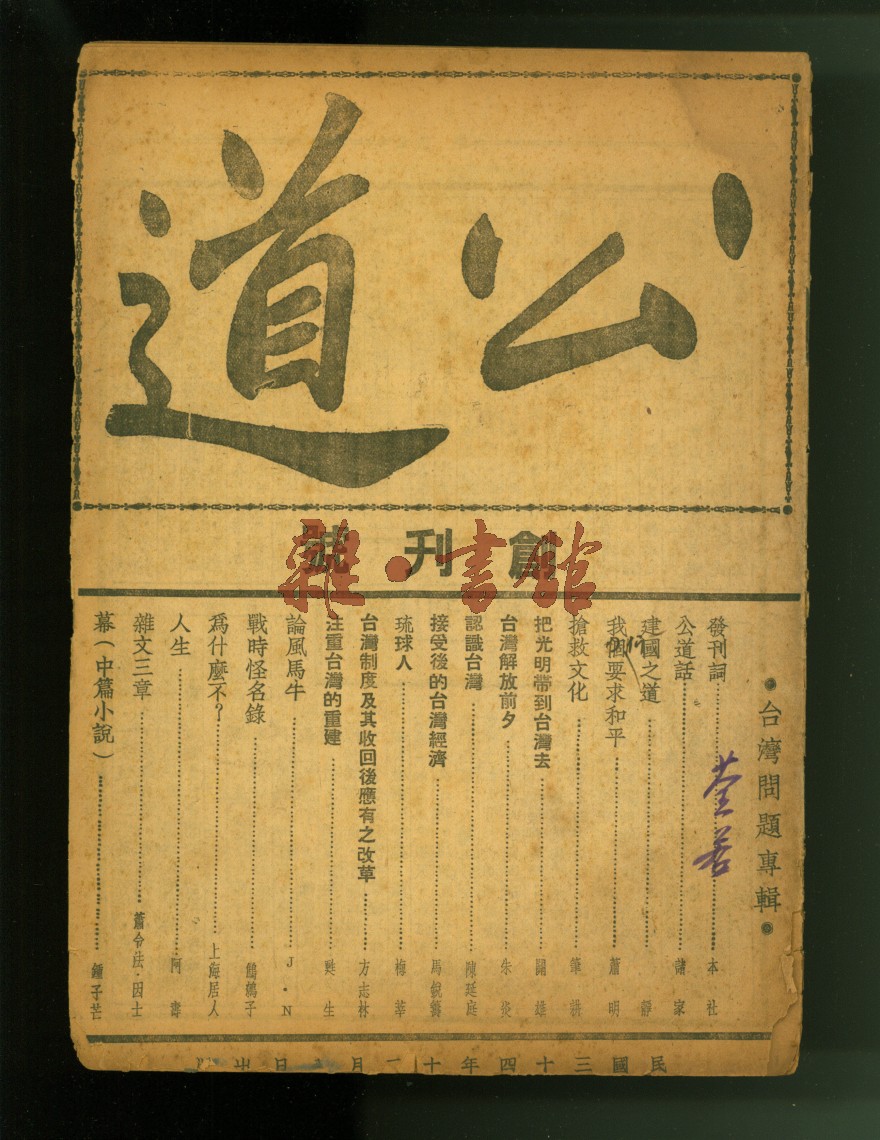 公道
創刊號
雜·書館
·台灣問題專輯·
荃若
發刊詞……本社
公道話……諸家
建國之道……靜
我們要求和平……蕭明
搶救文化……筆耕
把光明帶到台灣去……開雄
台灣解放前夕……朱炎
認識台灣……陳廷庭
接受後的台灣經濟……馬銳籌
琉球人……梅莘
台灣制度及其收回後應有之改革……方志林
注重台灣的重建……甦生
論風馬牛……J·N
戰時怪名錄……鷓鴣子
爲什麼不?……上海居人
人生……阿壽
雜文三章……蕭令法·因士
幕(中篇小說)……鍾子芒
民國三十四年十二月 日出